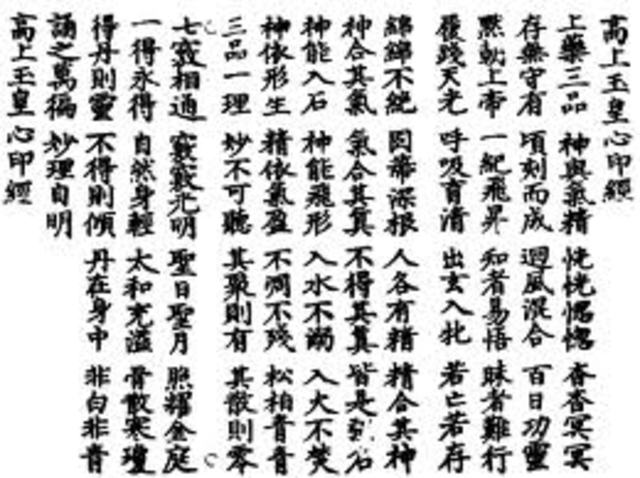 高上玉皇心印經
上藥三品 神與氣精 恍恍惚惚 杳杳冥冥
存無守有 頃刻而成 迴風混合 百日功靈
默朝上帝 一紀飛昇 知者易悟 昧者難行
履踐天光 呼吸育清 出玄入牝 若亡若存
綿綿不絕 固蒂深根 人各有精 精合其神
神合其氣 氣合其真 不得其真 皆是名
神能入石 神能飛形 入水不溺 入火不焚
神依形生 精依氣盈 不凋不殘 松柏青青
三品一理 妙不可聽 其聚則有 其散則零
七竅相通 竅竅光明 聖日聖月 照耀金庭
一得永得 自然身輕 太和充溢 骨散寒瓊
得丹則靈 不得則傾 丹在身中 非白非青
誦之萬徧 妙理自明
高上玉皇心印經